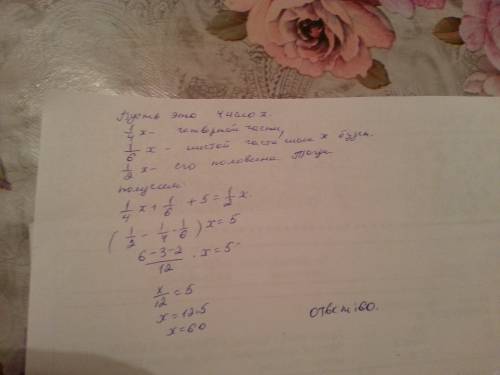 Пусть это число x.
1/4 x - четвертой части,
1/6 x - шестой части числа x будет
1/2 x - его половина Тогда
получаем:
1/4 x + 1/6 + 5 = 1/2 x.
(1/2 - 1/4 - 1/6) x = 5
(6-3-2)/12 · x = 5
x/12 = 5
x = 12·5
x = 60
ответ: 60.